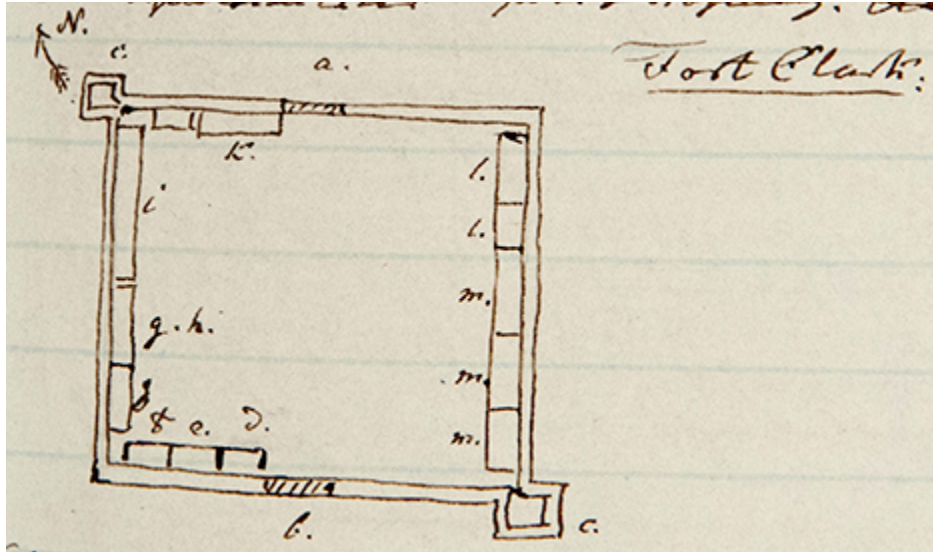 N.
c. a.
Fort Clark.
K.
l.
i
l.
g. h. m.
m.
g
f e. d. m.
b. c.